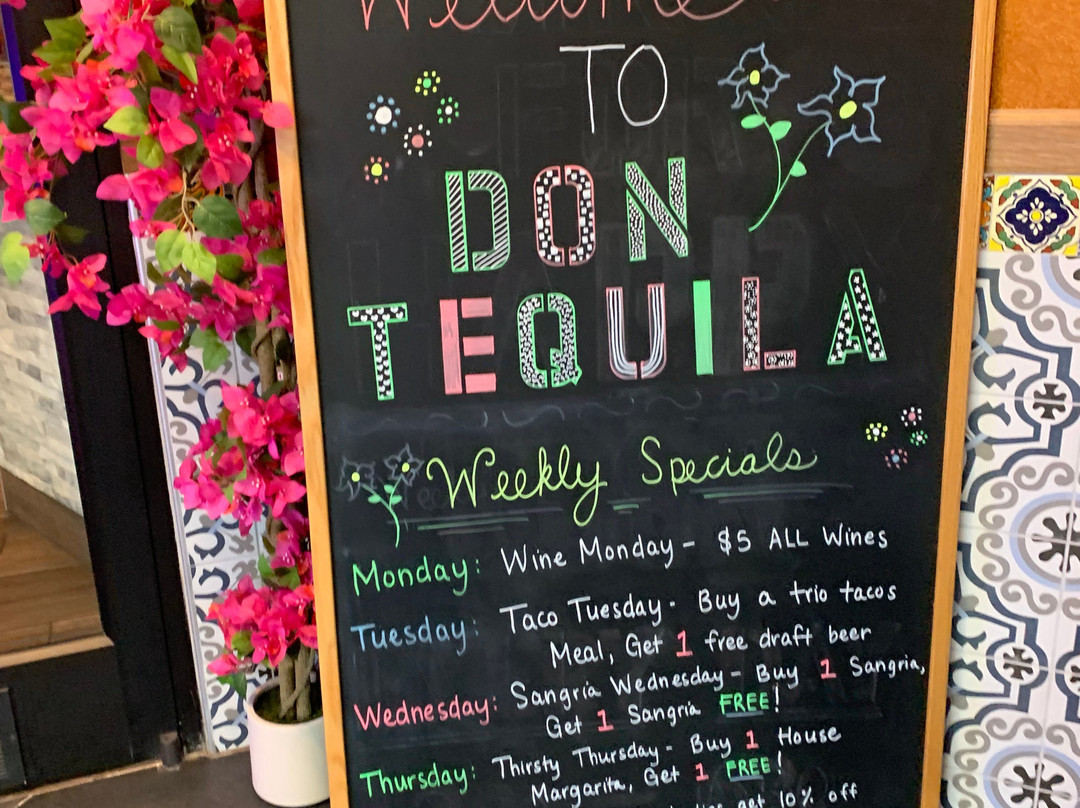 Welcome
TO
DON
TEQUILA
Weekly Specials
Monday: Wine Monday - $5 ALL Wines
Tuesday: Taco Tuesday - Buy a trio tacos
Meal, Get 1 free draft beer
Wednesday: Sangria Wednesday - Buy 1 Sangria,
Get 1 Sangria FREE!
Thursday: Thirsty Thursday - Buy 1 House
Margarita, Get 1 FREE!
get 10% off